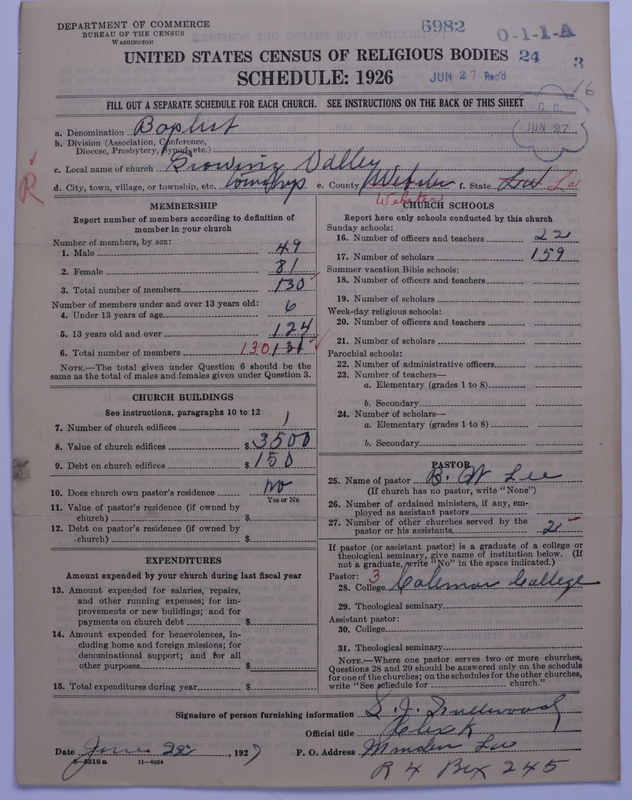 DEPARTMENT OF COMMERCE
BUREAU OF THE CENSUS
WASHINGTON
6982
0-1-1-A
UNITED STATES CENSUS OF RELIGIOUS BODIES 24
3
SCHEDULE: 1926
JUN 27 Rec'd
16
FILL OUT A SEPARATE SCHEDULE FOR EACH CHURCH. SEE INSTRUCTIONS ON THE BACK OF THIS SHEET
C. C.
JUN 27
a. Denomination Baptist
b. Division (Association, Conference,
Diocese, Presbytery, Synod, etc.)
c. Local name of church Growing Valley
R
d. City, town, village, or township, etc. township e. County Webster f. State La La
Webster
MEMBERSHIP
Report number of members according to definition of
member in your church
Number of members, by sex:
1. Male 49
2. Female 81
3. Total number of members 130
Number of members under and over 13 years old:
4. Under 13 years of age 6
5. 13 years old and over 124
6. Total number of members 130 131
NOTE.—The total given under Question 6 should be
the same as the total of males and females given under Question 3.
CHURCH BUILDINGS
See instructions, paragraphs 10 to 12
7. Number of church edifices 1
8. Value of church edifices $ 3500
9. Debt on church edifices $ 150
10. Does church own pastor's residence no
Yes or No
11. Value of pastor's residence (if owned by
church) $
12. Debt on pastor's residence (if owned by
church) $
EXPENDITURES
Amount expended by your church during last fiscal year
13. Amount expended for salaries, repairs,
and other running expenses; for im-
provements or new buildings; and for
payments on church debt $
14. Amount expended for benevolences, in-
cluding home and foreign missions; for
denominational support; and for all
other purposes $
15. Total expenditures during year $
CHURCH SCHOOLS
Report here only schools conducted by this church
Sunday schools:
16. Number of officers and teachers 22
17. Number of scholars 159
Summer vacation Bible schools:
18. Number of officers and teachers
19. Number of scholars
Week-day religious schools:
20. Number of officers and teachers
21. Number of scholars
Parochial schools:
22. Number of administrative officers
23. Number of teachers—
a. Elementary (grades 1 to 8)
b. Secondary
24. Number of scholars—
a. Elementary (grades 1 to 8)
b. Secondary
PASTOR
25. Name of pastor B. W Lee
(If church has no pastor, write "None")
26. Number of ordained ministers, if any, em-
ployed as assistant pastors
27. Number of other churches served by the
pastor or his assistants 2
If pastor (or assistant pastor) is a graduate of a college or
theological seminary, give name of institution below. (If
not a graduate, write "No" in the space indicated.)
Pastor: 3
28. College Coleman College
29. Theological seminary
Assistant pastor:
30. College
31. Theological seminary
NOTE.—Where one pastor serves two or more churches,
Questions 28 and 29 should be answered only on the schedule
for one of the churches; on the schedules for the other churches,
write "See schedule for church."
Signature of person furnishing information S. J.
Official title Clerk
Date June 22 1927
P. O. Address Minden La
8-5518a 11-9054
R 4 Box 245